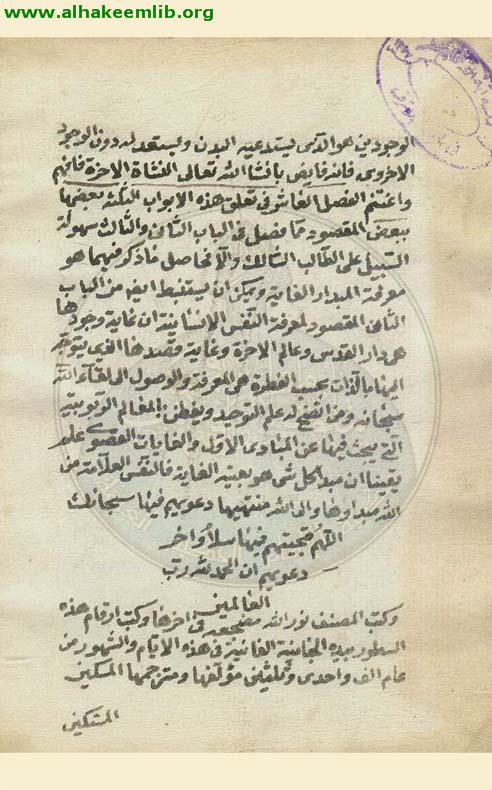 www.alhakeemlib.org
الوجودين هو الذى يستدعيه البدن ويستعد له دون الوجود
الاخروى فانه فايض بانشاء الله تعالى النشاة الاخرة فافهم
واغتنم الفصل العاشر فى تعلق هذه الابواب الثلثة بعضها
ببعض المقصود مما فصل فى الباب الثانى والثالث سهولة
السبيل على الطالب السالك والا فحاصل ما ذكر فيهما هو
معرفة المبدا والغاية ويمكن ان يستنبط ايض من الباب
الثانى المقصود لمعرفة النفس الانسانية ان غاية وجودها
هى دار القدس وعالم الاخرة وغاية وقصدها الذى يتوجه
اليها بالذات بحسب الفطرة هى المعرفة والوصول الى لقاء الله
سبحانه ومن انفتح له علم التوحيد ويفطن المعالم الربوبية
التى يبحث فيها عن المبادى الاول والغايات القصوى علم
يقينا ان مبدا كل شى هو بعينه الغاية فالنفس العلامة من
الله مبداوها والى الله منتهيها دعويهم فيها سبحانك
اللهم وتحيتهم فيها سلام واخر
دعويهم ان الحمد لله رب
العالمين
وكتب المصنف نور الله مضجعه فى اخرها وكتب ارقام هذه
السطور بيده الجانية الفانية فى هذه الايام والشهور من
عام الف واحدى وثلثين مؤلفها ومترجمها المسكين
المستكين